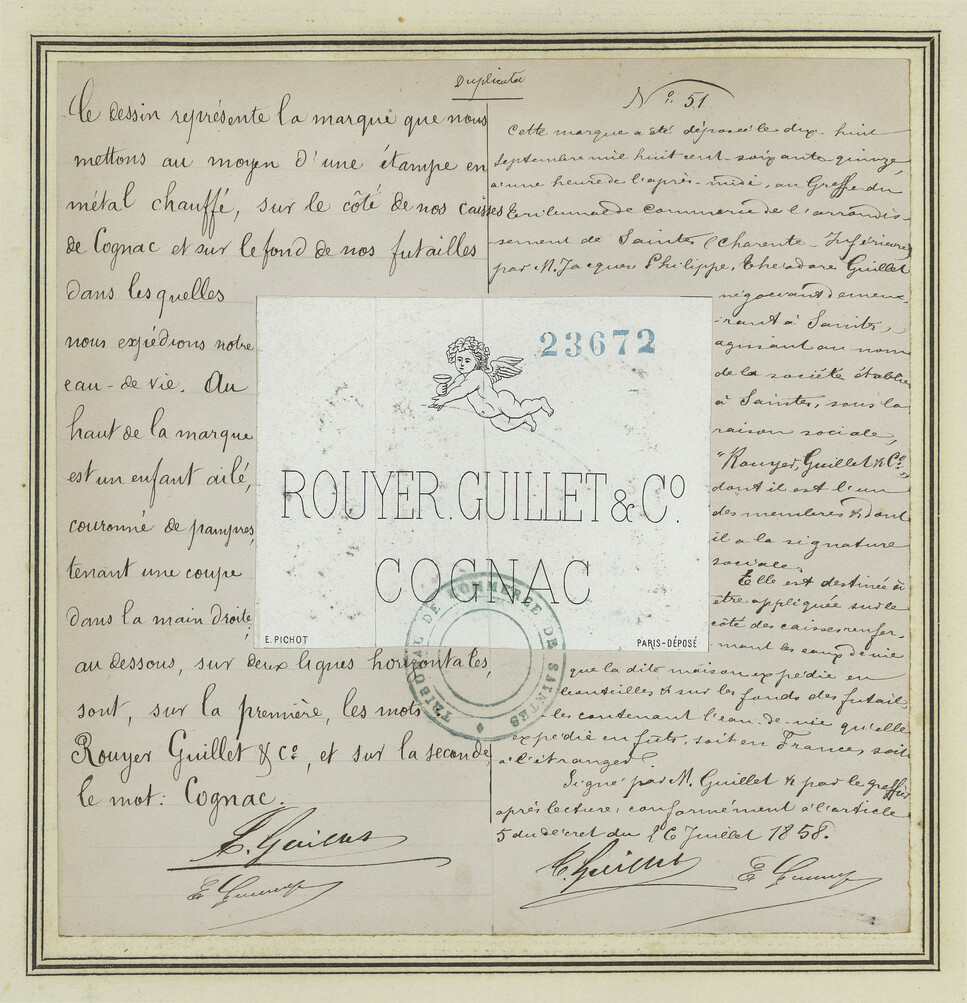 Duplicata
Le dessin représente la marque que nous
mettons au moyen d'une étampe en
métal chauffé, sur le côté de nos caisses
de Cognac et sur le fond de nos futailles
dans lesquelles
nous expédions notre
eau-de-vie. Au
haut de la marque
est un enfant ailé,
couronné de pampres,
tenant une coupe
dans la main droite;
au dessous, sur deux lignes horizontales,
sont, sur la première, les mots
Rouyer Guillet & Cº, et sur la seconde
le mot: Cognac.
Nº 51
Cette marque a été déposée le dix-huit
Septembre mil huit cent soixante quinze,
à une heure de l'après-midi, au Greffe du
Tribunal de Commerce de l'arrondis-
sement de Saintes (Charente-Inférieure)
par M. Jacques Philippe, Théodore Guillet
négociant demeu-
rant à Saintes,
agissant au nom
de la société établie
à Saintes, sous la
raison sociale,
"Rouyer, Guillet & Cº,
dont il est l'un
des membres & dont
il a la signature
sociale.
Elle est destinée à
être appliquée sur le
côté des caisses renfer-
mant les eaux de vie
que la dite maison expédie en
bouteilles & sur les fonds des futail.
les contenant l'eau-de-vie qu'elle
expédie en fûts, soit en France, soit
à l'étranger.
Signé par M. Guillet & par le greffier
après lecture, conformément à l'article
5 du décret du 26 Juillet 1858.
23672
ROUYER.GUILLET & Cº.
COGNAC
E. PICHOT
PARIS-DÉPOSÉ
TRIBUNAL DE COMMERCE DE SAINTES
Guillet
Guillet